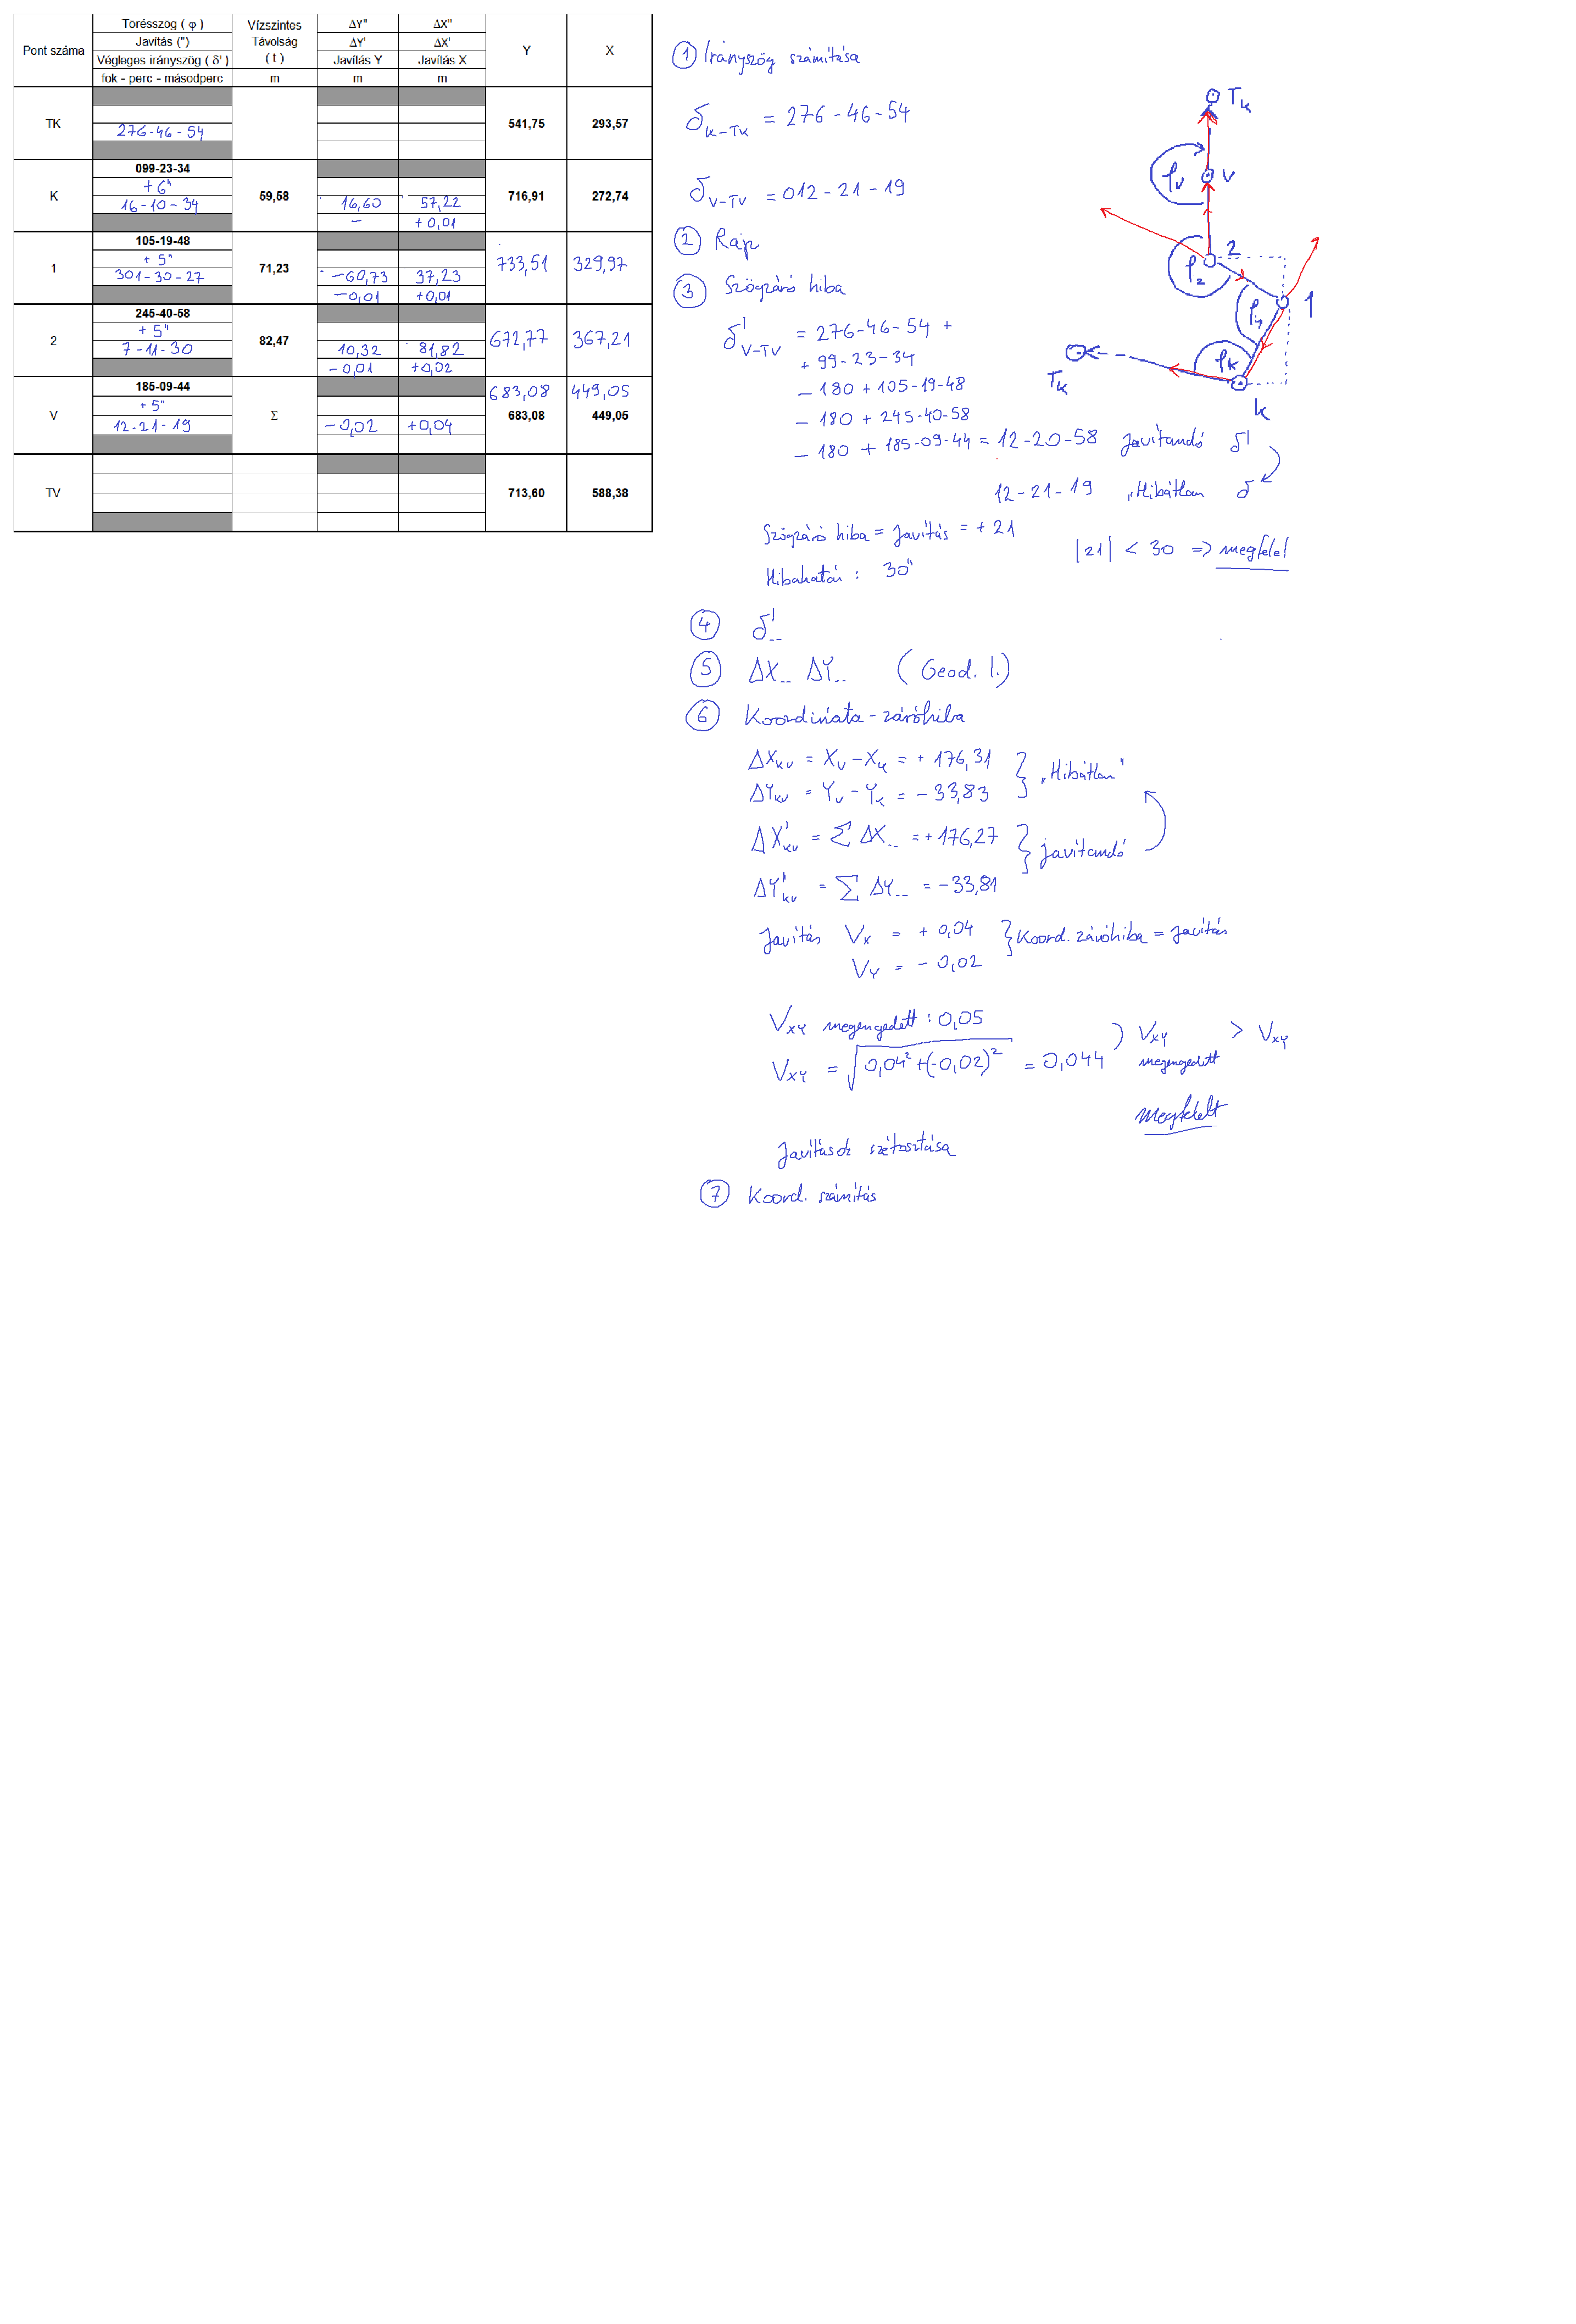 Pont száma
Törésszög ( φ )
Javítás (")
Végleges irányszög ( δ' )
fok - perc - másodperc
Vízszintes
Távolság
( t )
m
ΔY"
ΔY'
Javítás Y
m
ΔX"
ΔX'
Javítás X
m
Y
X
TK
276-46-54
541,75
293,57
K
099-23-34
+6"
16-10-34
59,58
16,60
57,22
-
+0,01
716,91
272,74
1
105-19-48
+ 5"
301-30-27
71,23
-60,73
37,23
-0,01
+0,01
733,51
329,97
2
245-40-58
+ 5"
7-11-30
82,47
10,32
81,82
-0,01
+0,02
672,77
367,21
V
185-09-44
+5"
12-21-19
Σ
-0,02
+0,04
683,08
449,05
683,08
449,05
TV
713,60
588,38
① Irányszög számítása
δK-TK = 276-46-54
δV-TV = 012-21-19
② Rajz
③ Szögzáró hiba
δ'V-TV = 276-46-54 +
+ 99-23-34
- 180 + 105-19-48
- 180 + 245-40-58
- 180 + 185-09-44 = 12-20-58 Javítandó δ'
12-21-19 „Hibátlan δ
Szögzáró hiba = Javítás = + 21
Hibahatár : 30"
|21| < 30 => megfelel
④ δ'--
⑤ ΔX-- ΔY-- (Geod. I.)
⑥ Koordináta-záróhiba
ΔXKV = XV - XK = + 176,31
ΔYKV = YV - YK = - 33,83
} „Hibátlan"
ΔX'KV = Σ ΔX-- = +176,27
ΔY'KV = Σ ΔY-- = -33,81
} javítandó
Javítás VX = + 0,04
VY = - 0,02
} Koord. záróhiba = Javítás
VXY megengedett : 0,05
VXY = √0,04² +(-0,02)² = 0,044
) VXY megengedett > VXY
Megfelelt
Javítások szétosztása
⑦ Koord. számítás
TK
V
φV
2
φ2
1
φ1
φK
TK
K